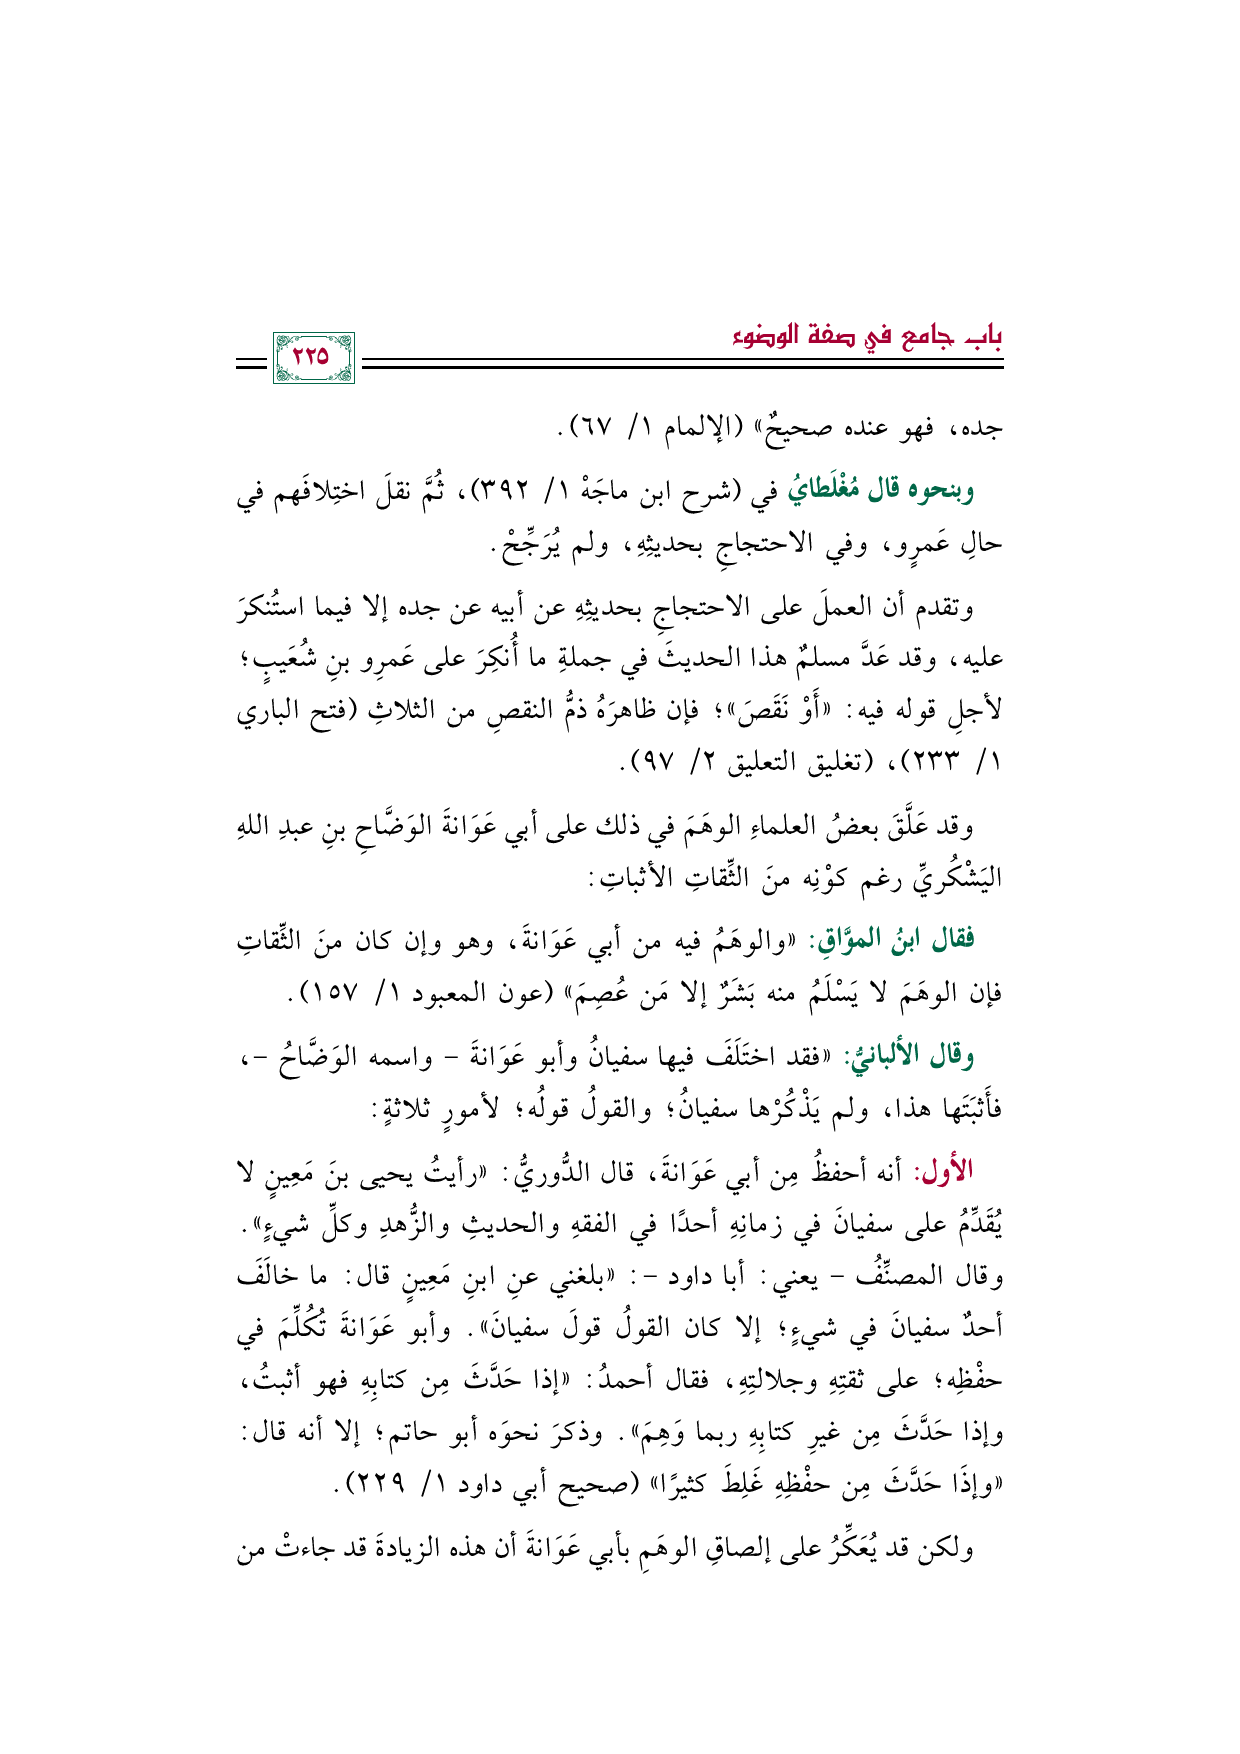 باب جامع في صفة الوضوء
٢٢٥
جده، فهو عنده صحيحٌ» (الإلمام ١/ ٦٧).
وبنحوه قال مُغْلَطايُ في (شرح ابن ماجَهْ ١/ ٣٩٢)، ثُمَّ نقلَ اختِلافَهم في
حالِ عَمرٍو، وفي الاحتجاجِ بحديثِهِ، ولم يُرَجِّحْ.
وتقدم أن العملَ على الاحتجاجِ بحديثِهِ عن أبيه عن جده إلا فيما استُنكرَ
عليه، وقد عَدَّ مسلمٌ هذا الحديثَ في جملةِ ما أُنكِرَ على عَمرِو بنِ شُعَيبٍ؛
لأجلِ قوله فيه: «أَوْ نَقَصَ»؛ فإن ظاهرَهُ ذمُّ النقصِ من الثلاثِ (فتح الباري
١/ ٢٣٣)، (تغليق التعليق ٢/ ٩٧).
وقد عَلَّقَ بعضُ العلماءِ الوهَمَ في ذلك على أبي عَوَانةَ الوَضَّاحِ بنِ عبدِ اللهِ
اليَشْكُريِّ رغم كوْنِه منَ الثِّقاتِ الأثباتِ:
فقال ابنُ الموَّاقِ: «والوهَمُ فيه من أبي عَوَانةَ، وهو وإن كان منَ الثِّقاتِ
فإن الوهَمَ لا يَسْلَمُ منه بَشَرٌ إلا مَن عُصِمَ» (عون المعبود ١/ ١٥٧).
وقال الألبانيُّ: «فقد اختَلَفَ فيها سفيانُ وأبو عَوَانةَ - واسمه الوَضَّاحُ -،
فأَثبَتَها هذا، ولم يَذْكُرْها سفيانُ؛ والقولُ قولُه؛ لأمورٍ ثلاثةٍ:
الأول: أنه أحفظُ مِن أبي عَوَانةَ، قال الدُّوريُّ: «رأيتُ يحيى بنَ مَعِينٍ لا
يُقَدِّمُ على سفيانَ في زمانِهِ أحدًا في الفقهِ والحديثِ والزُّهدِ وكلِّ شيءٍ».
وقال المصنِّفُ - يعني: أبا داود -: «بلغني عنِ ابنِ مَعِينٍ قال: ما خالَفَ
أحدٌ سفيانَ في شيءٍ؛ إلا كان القولُ قولَ سفيانَ». وأبو عَوَانةَ تُكُلِّمَ في
حفْظِه؛ على ثقتِهِ وجلالتِهِ، فقال أحمدُ: «إذا حَدَّثَ مِن كتابِهِ فهو أثبتُ،
وإذا حَدَّثَ مِن غيرِ كتابِهِ ربما وَهِمَ». وذكرَ نحوَه أبو حاتم؛ إلا أنه قال:
«وإذَا حَدَّثَ مِن حفْظِهِ غَلِطَ كثيرًا» (صحيح أبي داود ١/ ٢٢٩).
ولكن قد يُعَكِّرُ على إلصاقِ الوهَمِ بأبي عَوَانةَ أن هذه الزيادةَ قد جاءتْ من